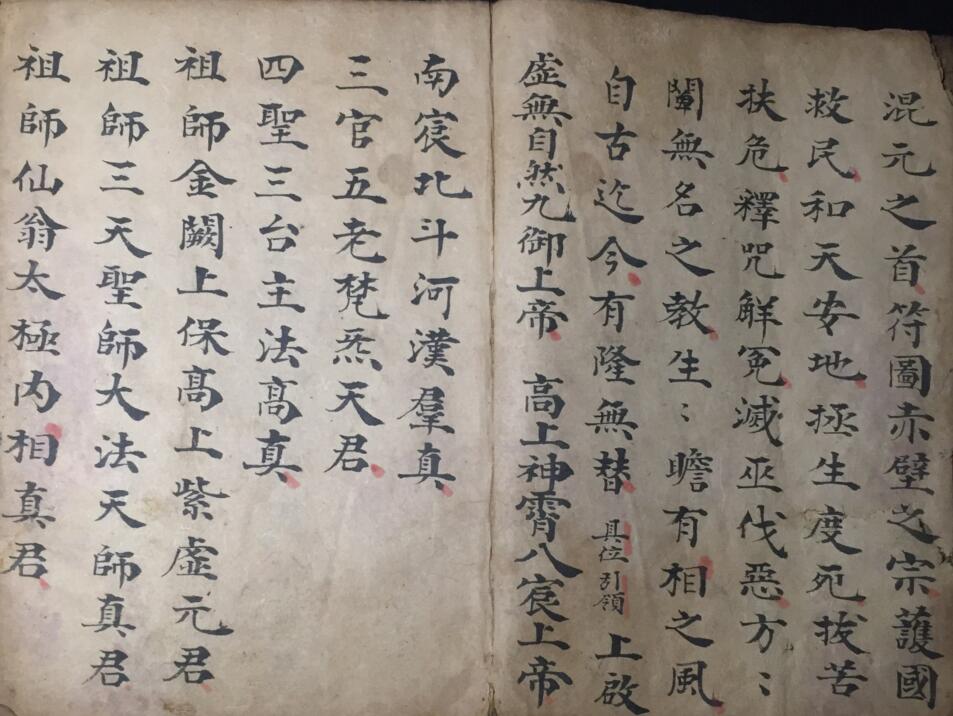 混元之首符圖赤壁之宗護國
救民和天安地拯生度死拔苦
扶危釋咒解冤滅巫伐惡方〻
闡無名之教生〻瞻有相之風
自古迄今有隆無替 具位引領 上啟
虛無自然九御上帝 高上神霄八宸上帝
南宸北斗河漢羣真
三官五老梵炁天君
四聖三台主法高真
祖師金闕上保高上紫虛元君
祖師三天聖師大法天師真君
祖師仙翁太極內相真君